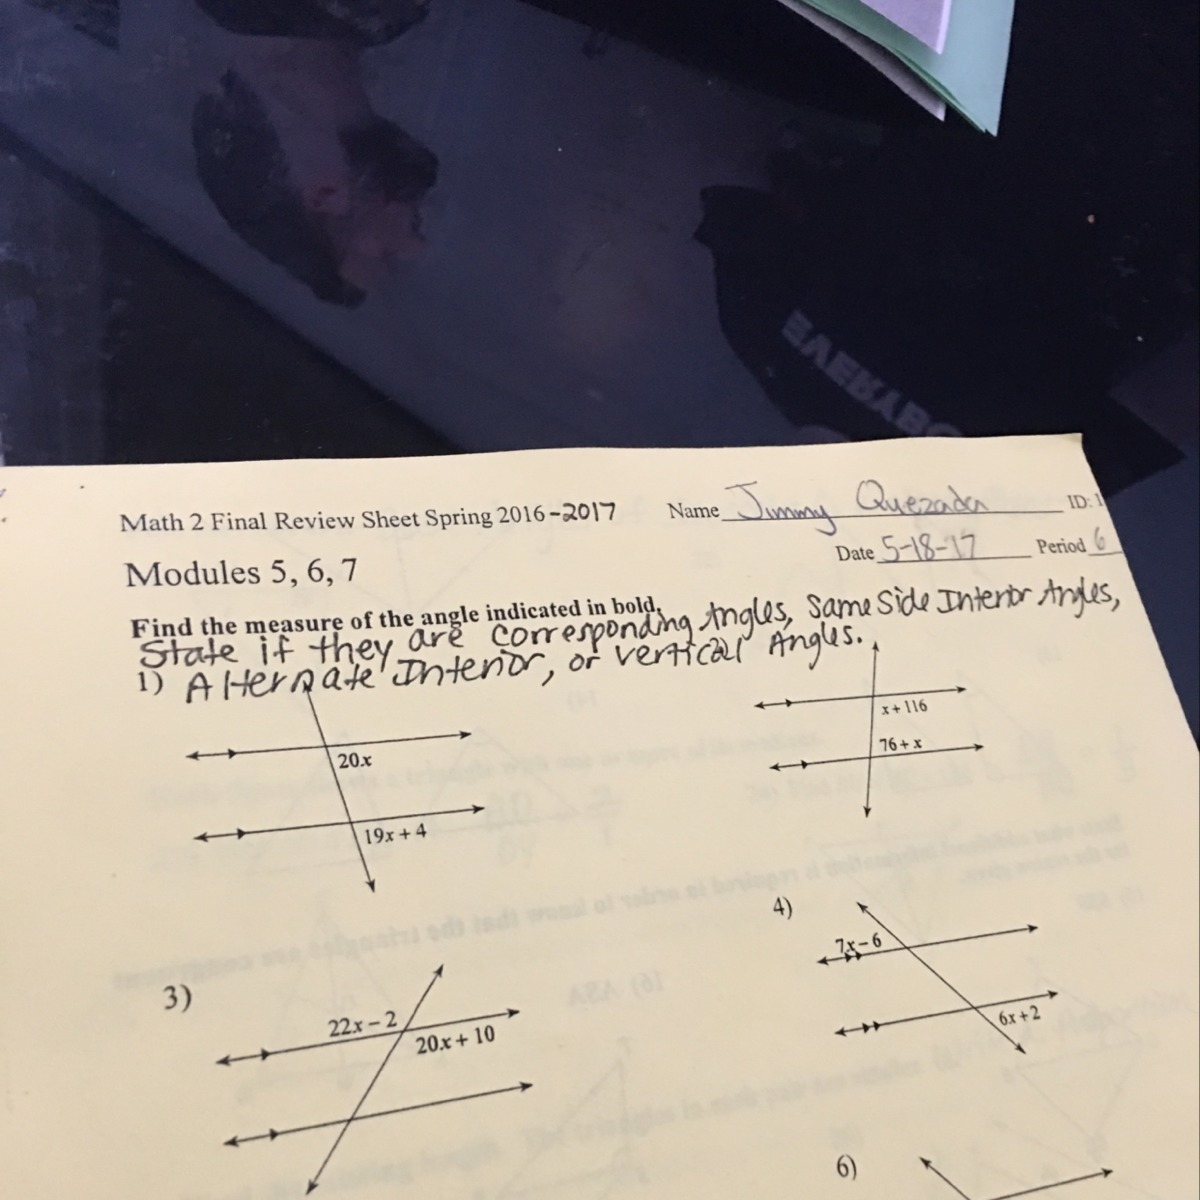 Math 2 Final Review Sheet Spring 2016-2017
Name Jimmy Quezada
ID: 1
Date 5-18-17
Period 6
Modules 5, 6, 7
Find the measure of the angle indicated in bold.
State if they are corresponding Angles, Same Side Interior Angles,
1) Alternate Interior, or vertical Angles.
20x
19x + 4
x + 116
76 + x
3)
22x − 2
20x + 10
4)
7x − 6
6x + 2
6)
16) ASA